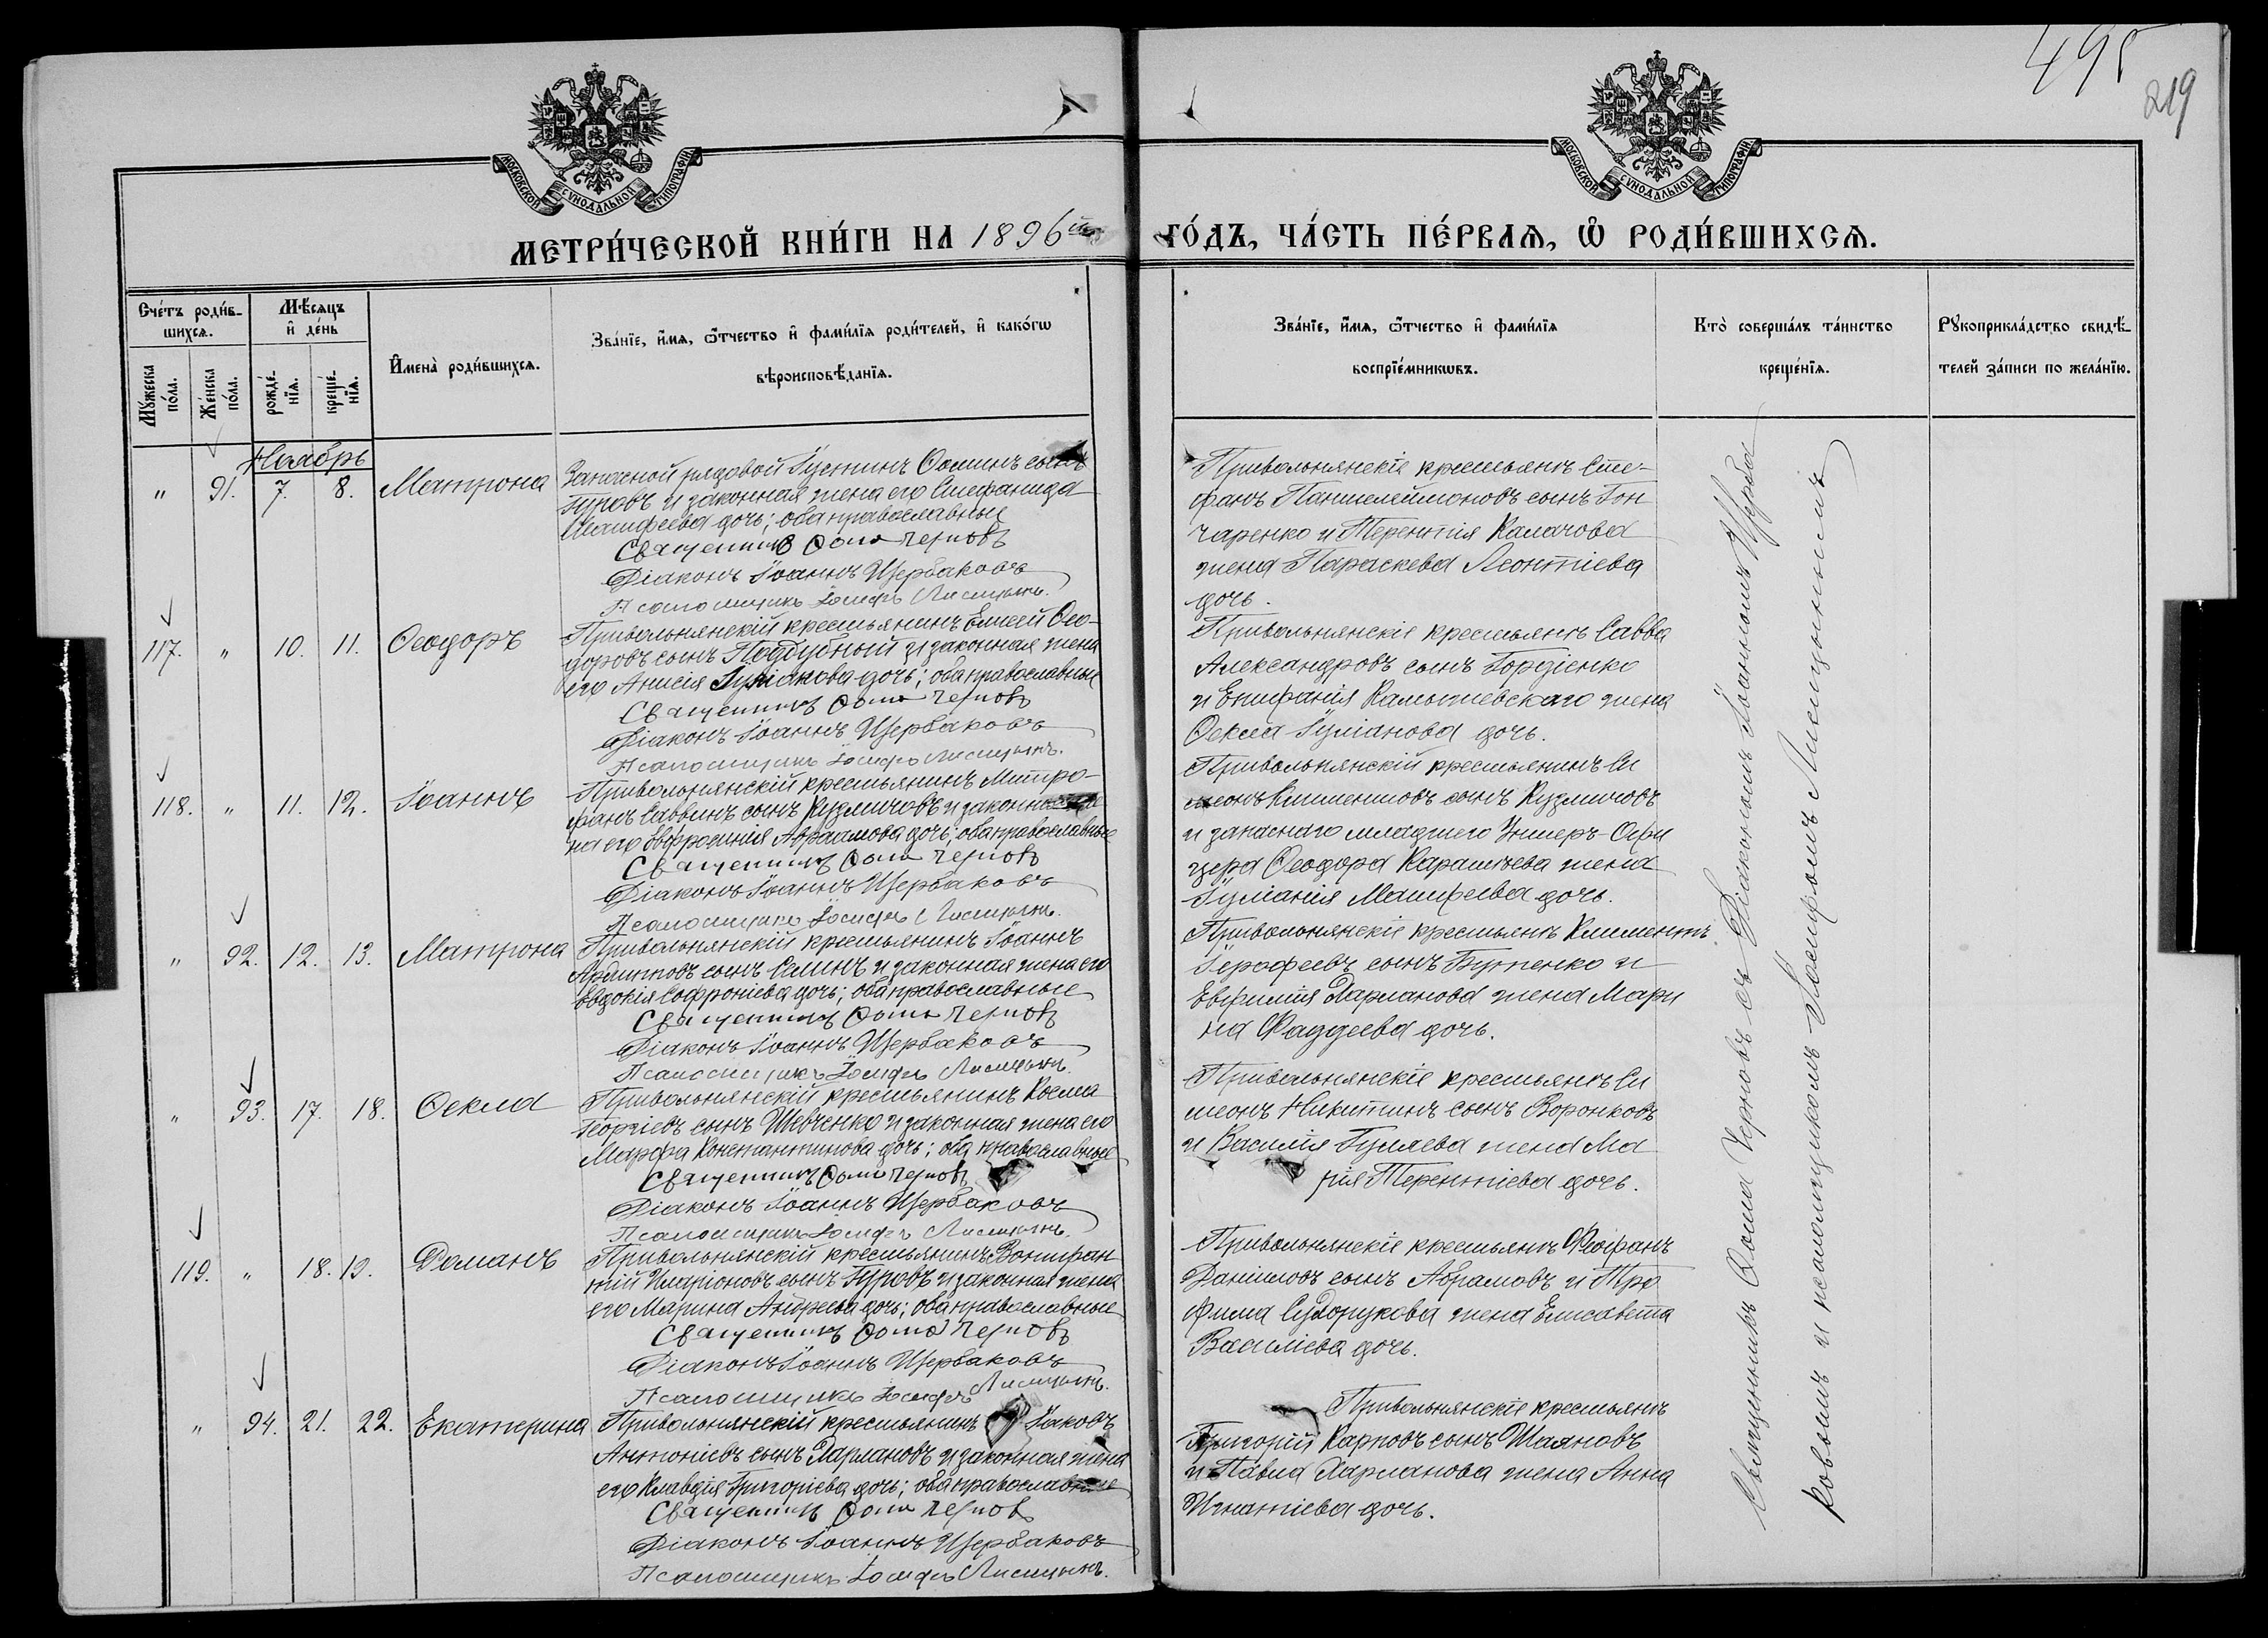 495
219
МОСКОВСКОЙ СУНОДАЛЬНОЙ ТИПОГРАФІИ
МОСКОВСКОЙ СУНОДАЛЬНОЙ ТИПОГРАФІИ
МЕТРИ́ЧЕСКОЙ КНИ́ГИ НА 1896й
ГО́ДЪ, ЧА́СТЬ ПЕ́РВАѦ, Ѽ РОДИ́ВШИХСѦ.
Сче́тъ роди́в-
шихсѧ.
Мꙋ́жеска по́ла.
Же́нска по́ла.
Мѣ́сѧцъ
и҆ де́нь
рожде́-
нїѧ.
креще́-
нїѧ.
И҆мена̀ роди́вшихсѧ.
Зва́нїе, и҆́мѧ, ѻ҆́тчество и҆ фами́лїѧ роди́телей, и҆ како́гѡ
вѣроисповѣ́данїѧ.
Зва́нїе, и҆́мѧ, ѻ҆́тчество и҆ фами́лїѧ
воспрїе́мникѡвъ.
Кто̀ соверша́лъ та́инство
креще́нїѧ.
Рꙋкоприкла́дство свидѣ́-
телей за́писи по жела́нїю.
Ноябрь
" 91. 7. 8. Матрона
Запасной рядовой Іустинъ Ѳоминъ сынъ
Гуровъ и законная жена его Стефанида
Матфеева дочь; оба православные
Священникъ Ѳома Черновъ
Діаконъ Іоаннъ Щербаковъ
Псаломщикъ Іосифъ Лисицынъ.
Привольнянскіе крестьянъ Сте-
фанъ Пантелеймоновъ сынъ Гон
чаренко и Терентія Калачова
жена Параскева Леонтіева
дочь.
117. " 10. 11. Ѳеодоръ
Привольнянскій крестьянинъ Елисей Ѳео-
доровъ сынъ Поддубный и законная жена
его Анисія дочь; оба православные
Священникъ Ѳома Черновъ
Діаконъ Іоаннъ Щербаковъ
Псаломщикъ Іосифъ Лисицынъ.
Привольнянскіе крестьянъ Савва
Александровъ сынъ Гордіенко
и Епифанія Камышевскаго жена
Ѳекла Іуліанова дочь.
118. " 11. 12. Іоаннъ
Привольнянскій крестьянинъ Митро-
фанъ Саввинъ сынъ Кузмичовъ и законная же
на его Евфросинія Авраамова дочь; оба православные
Священникъ Ѳома Черновъ
Діаконъ Іоаннъ Щербаковъ
Псаломщикъ Іосифъ Лисицынъ.
Привольнянскій крестьянинъ Си
меонъ Климентовъ сынъ Кузмичовъ
и запаснаго младшего Унтеръ-Офи
цера Ѳеодора жена
Іуліанія Матфеева дочь.
" 92. 12. 13. Матрона
Привольнянскій крестьянинъ Іоаннъ
сынъ Селинъ и законная жена его
Евдокія Софроніева дочь; оба православные
Священникъ Ѳома Черновъ
Діаконъ Іоаннъ Щербаковъ
Псаломщикъ Іосифъ Лисицынъ.
Привольнянскіе крестьянъ Климентъ
Іерофеевъ сынъ Бутенко и
Евфимія Харланова жена Мари
на Фаддеева дочь.
" 93. 17. 18. Ѳекла
Привольнянскій крестьянинъ Косма
Георгіевъ сынъ Шевченко и законная жена его
Марфа Константинова дочь; оба православные
Священникъ Ѳома Черновъ
Діаконъ Іоаннъ Щербаковъ
Псаломщикъ Іосифъ Лисицынъ.
Привольнянскіе крестьянъ Си
меонъ Никитинъ сынъ Воронковъ
и Василія Гуляева жена Ма
рія Терентіева дочь.
119. " 18. 19. Романъ
Привольнянскій крестьянинъ Вонифан
тій Иларіоновъ сынъ Гуровъ и законная жена
его Марина Андреева дочь; оба православные
Священникъ Ѳома Черновъ
Діаконъ Іоаннъ Щербаковъ
Псаломщикъ Іосифъ Лисицынъ.
Привольнянскіе крестьянъ Феофанъ
Даніиловъ сынъ Абрамовъ и Тро
фима Сидорукова жена Елисавета
Василіева дочь.
" 94. 21. 22. Екатерина
Привольнянскій крестьянинъ Іаковъ
Антоніевъ сынъ Харлановъ и законная жена
его Клавдія Григоріева дочь; оба православные
Священникъ Ѳома Черновъ
Діаконъ Іоаннъ Щербаковъ
Псаломщикъ Іосифъ Лисицынъ.
Привольнянскіе крестьянъ
Григорій Карповъ сынъ Шаяновъ
и Павла Харланова жена Анна
Игнатіева дочь.
Священникъ Ѳома Черновъ съ Діакономъ Іоанномъ Щерба
ковымъ и псаломщикомъ Іосифомъ Лисицынымъ